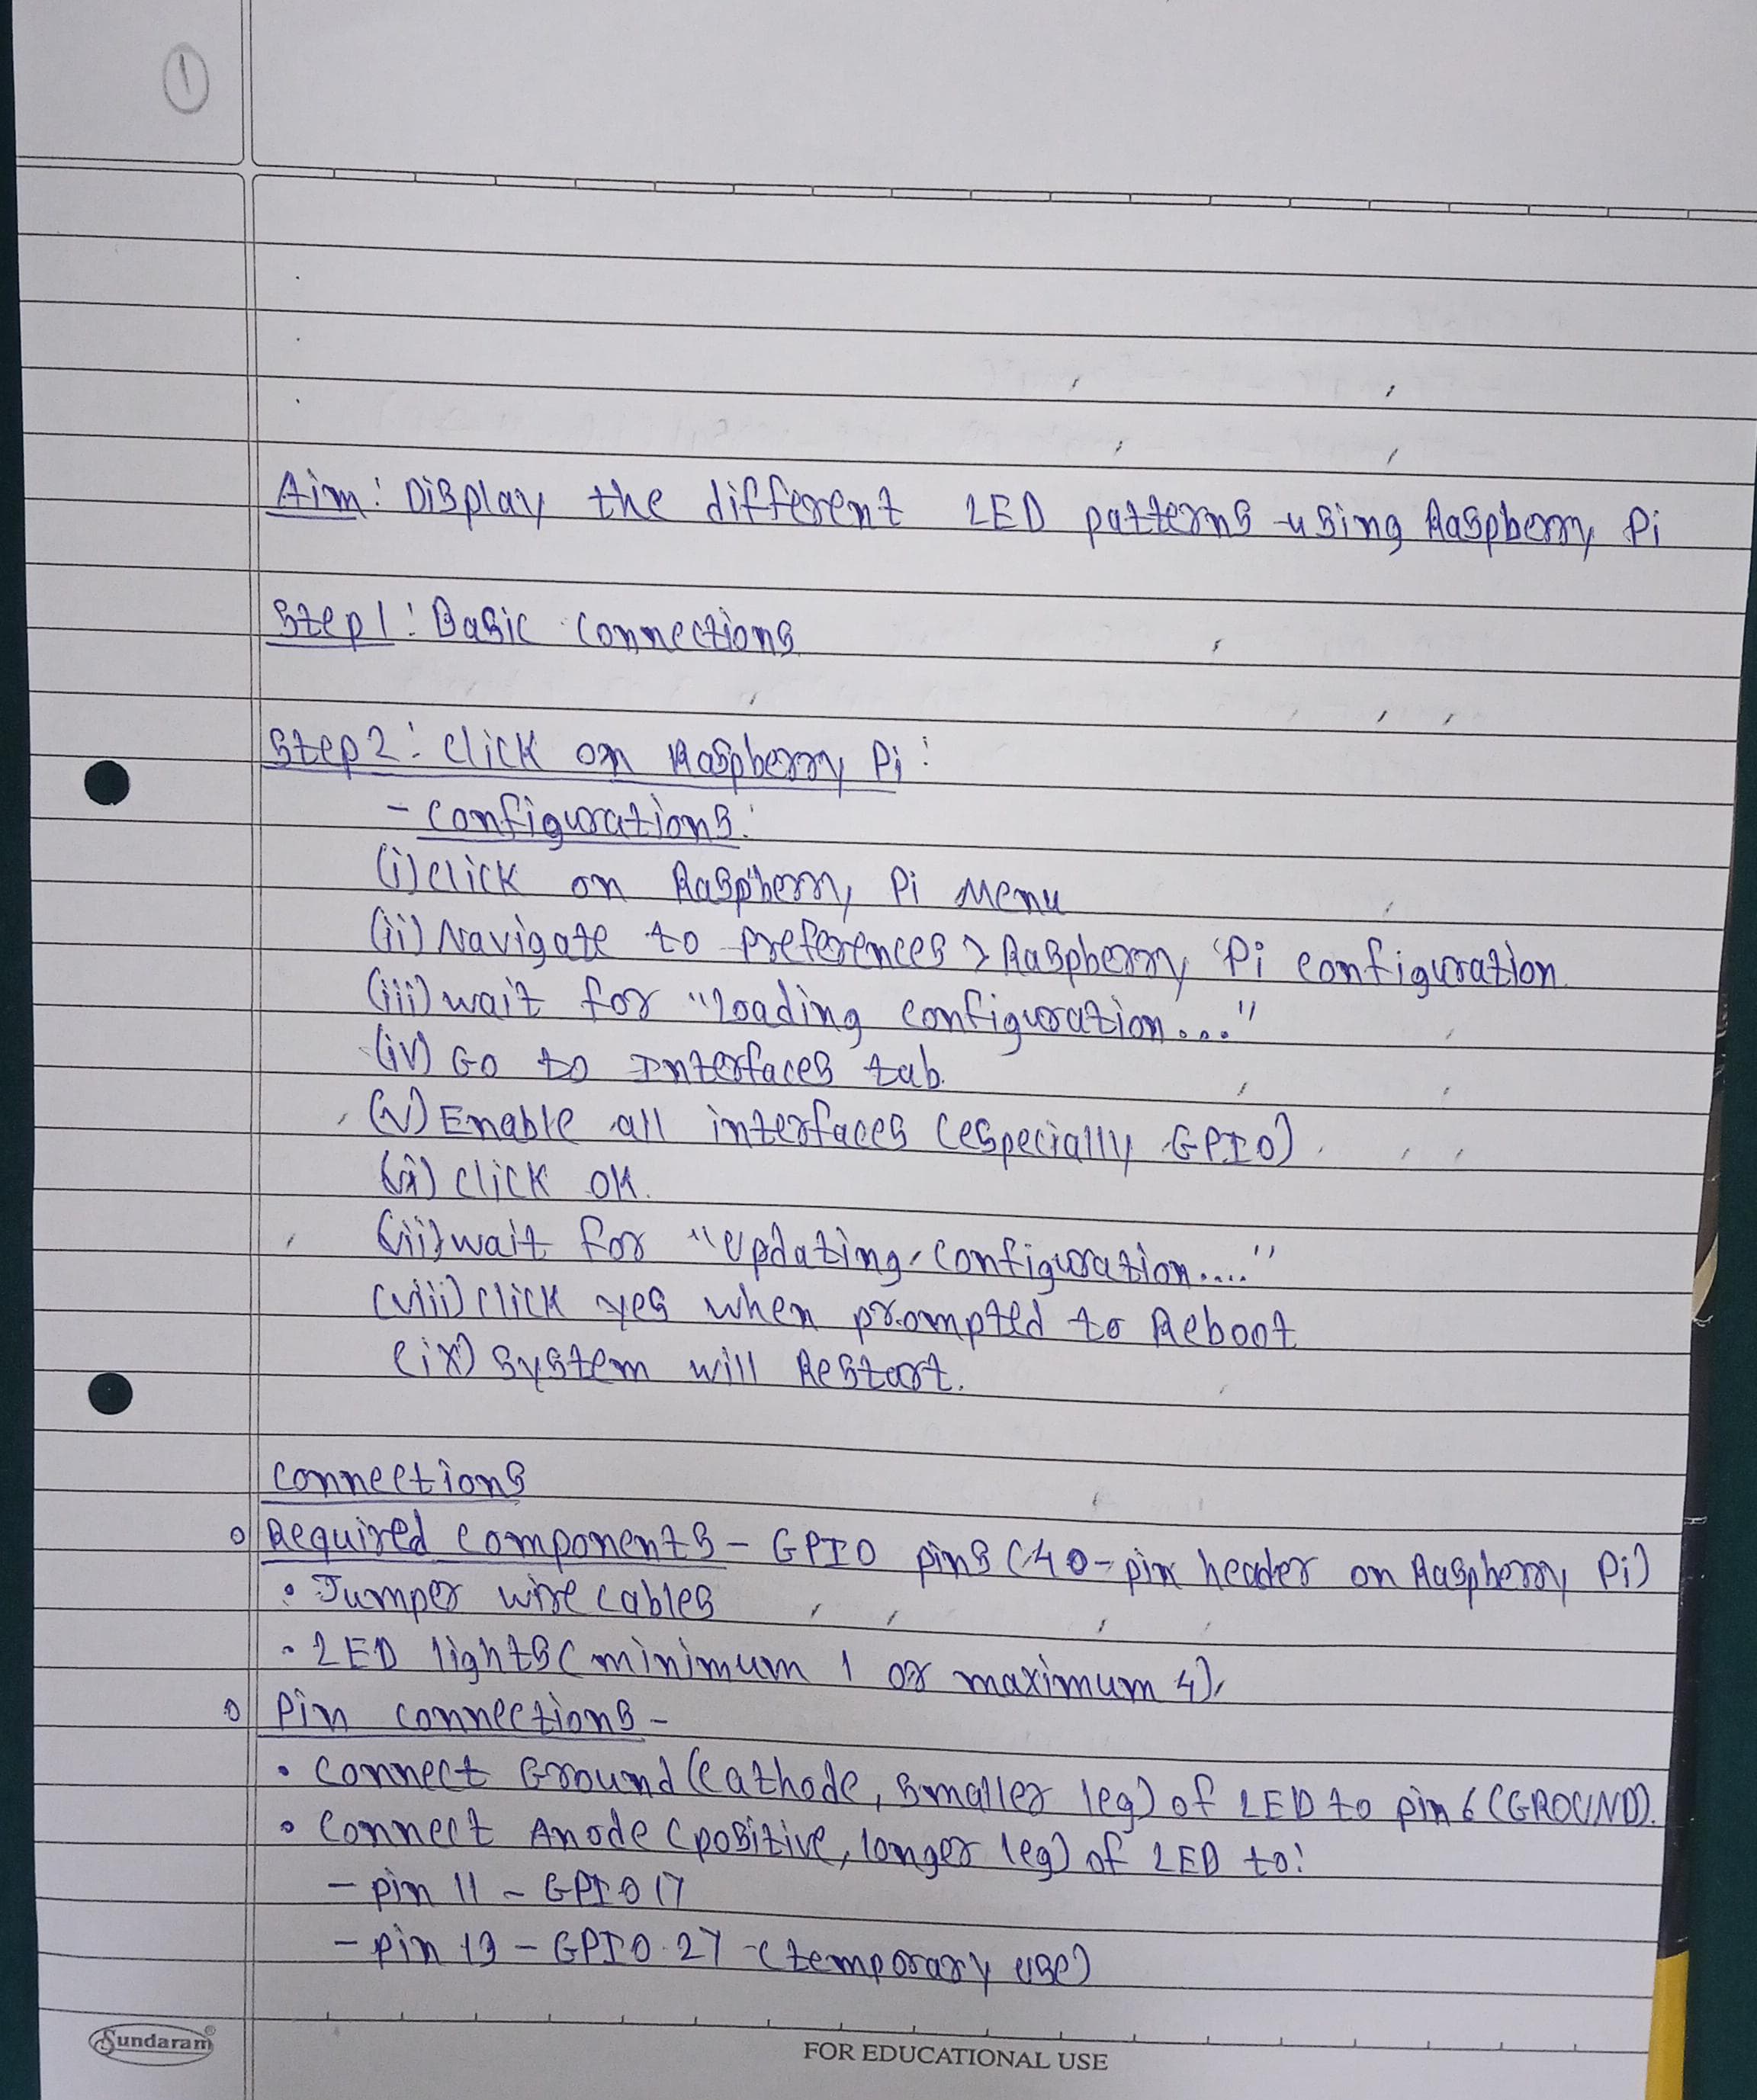 1
Aim: Display the different LED patterns using Raspberry Pi
Step1: Basic connections
Step2: Click on Raspberry Pi:
- Configurations:
(i) Click on Raspberry Pi Menu
(ii) Navigate to preferences > Raspberry Pi configuration
(iii) wait for "Loading configuration..."
(iv) Go to Interfaces tab.
(v) Enable all interfaces (especially GPIO)
(vi) click OK.
(vii) wait for "Updating configuration...."
(viii) Click yes when prompted to Reboot
(ix) System will Restart.
Connections
o Required Components - GPIO pins (40-pin header on Raspberry Pi)
• Jumper wire cables
• LED lights (minimum 1 or maximum 4),
o Pin connections -
• Connect Ground (Cathode, smaller leg) of LED to pin 6 (GROUND).
• Connect Anode (positive, longer leg) of LED to:
- pin 11 - GPIO 17
- pin 13 - GPIO 27 (temporary use)
Sundaram®
FOR EDUCATIONAL USE